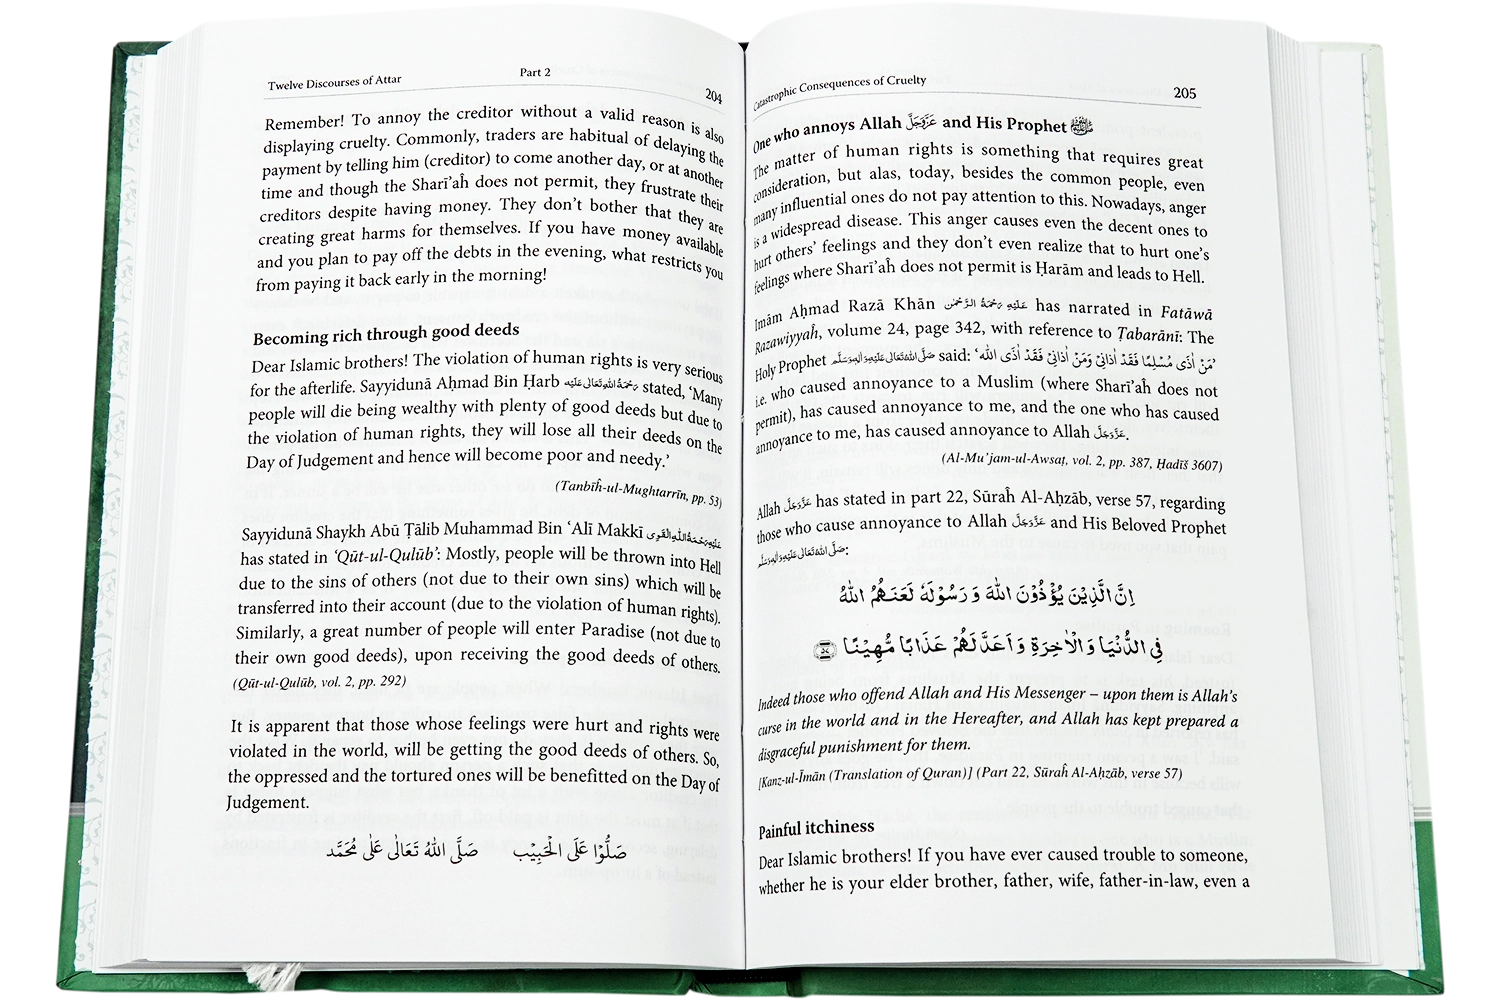 Twelve Discourses of Attar Part 2 204
Remember! To annoy the creditor without a valid reason is also
displaying cruelty. Commonly, traders are habitual of delaying the
payment by telling him (creditor) to come another day, or at another
time and though the Sharī’aĥ does not permit, they frustrate their
creditors despite having money. They don’t bother that they are
creating great harms for themselves. If you have money available
and you plan to pay off the debts in the evening, what restricts you
from paying it back early in the morning!
Becoming rich through good deeds
Dear Islamic brothers! The violation of human rights is very serious
for the afterlife. Sayyidunā Aḥmad Bin Ḥarb رَحْمَةُ اللهِ تَعَالٰى عَلَيْه stated, ‘Many
people will die being wealthy with plenty of good deeds but due to
the violation of human rights, they will lose all their deeds on the
Day of Judgement and hence will become poor and needy.’
(Tanbīĥ-ul-Mughtarrīn, pp. 53)
Sayyidunā Shaykh Abū Ṭālib Muhammad Bin ‘Alī Makkī عَلَيْهِ رَحْمَةُ اللهِ الْقَوِى
has stated in ‘Qūt-ul-Qulūb’: Mostly, people will be thrown into Hell
due to the sins of others (not due to their own sins) which will be
transferred into their account (due to the violation of human rights).
Similarly, a great number of people will enter Paradise (not due to
their own good deeds), upon receiving the good deeds of others.
(Qūt-ul-Qulūb, vol. 2, pp. 292)
It is apparent that those whose feelings were hurt and rights were
violated in the world, will be getting the good deeds of others. So,
the oppressed and the tortured ones will be benefitted on the Day of
Judgement.
صَلُّوْا عَلَى الْحَبِيْب صَلَّى اللهُ تَعَالٰى عَلٰى مُحَمَّد
Catastrophic Consequences of Cruelty 205
One who annoys Allah عَزَّوَجَلَّ and His Prophet ﷺ
The matter of human rights is something that requires great
consideration, but alas, today, besides the common people, even
many influential ones do not pay attention to this. Nowadays, anger
is a widespread disease. This anger causes even the decent ones to
hurt others’ feelings and they don’t even realize that to hurt one’s
feelings where Sharī’aĥ does not permit is Ḥarām and leads to Hell.
Imām Aḥmad Razā Khān عَلَيْهِ رَحْمَةُ الرَّحْمٰن has narrated in Fatāwā
Razawiyyaĥ, volume 24, page 342, with reference to Ṭabarānī: The
Holy Prophet صَلَّى اللهُ تَعَالٰى عَلَيْهِ وَاٰلِهٖ وَسَلَّم said: ‘مَنْ اٰذٰى مُسْلِمًا فَقَدْ اٰذَانِىْ وَمَنْ اٰذَانِىْ فَقَدْ اٰذَى الله’
i.e. who caused annoyance to a Muslim (where Sharī’aĥ does not
permit), has caused annoyance to me, and the one who has caused
annoyance to me, has caused annoyance to Allah عَزَّوَجَلَّ.
(Al-Mu’jam-ul-Awsaṭ, vol. 2, pp. 387, Ḥadīš 3607)
Allah عَزَّوَجَلَّ has stated in part 22, Sūraĥ Al-Aḥzāb, verse 57, regarding
those who cause annoyance to Allah عَزَّوَجَلَّ and His Beloved Prophet
صَلَّى اللهُ تَعَالٰى عَلَيْهِ وَاٰلِهٖ وَسَلَّم:
اِنَّ الَّذِيْنَ يُؤْذُوْنَ اللهَ وَ رَسُوْلَهٗ لَعَنَهُمُ اللهُ
فِى الدُّنْيَا وَ الْاٰخِرَةِ وَ اَعَدَّ لَهُمْ عَذَابًا مُّهِيْنًا ﴿۵۷﴾
Indeed those who offend Allah and His Messenger – upon them is Allah’s
curse in the world and in the Hereafter, and Allah has kept prepared a
disgraceful punishment for them.
[Kanz-ul-Īmān (Translation of Quran)] (Part 22, Sūraĥ Al-Aḥzāb, verse 57)
Painful itchiness
Dear Islamic brothers! If you have ever caused trouble to someone,
whether he is your elder brother, father, wife, father-in-law, even a